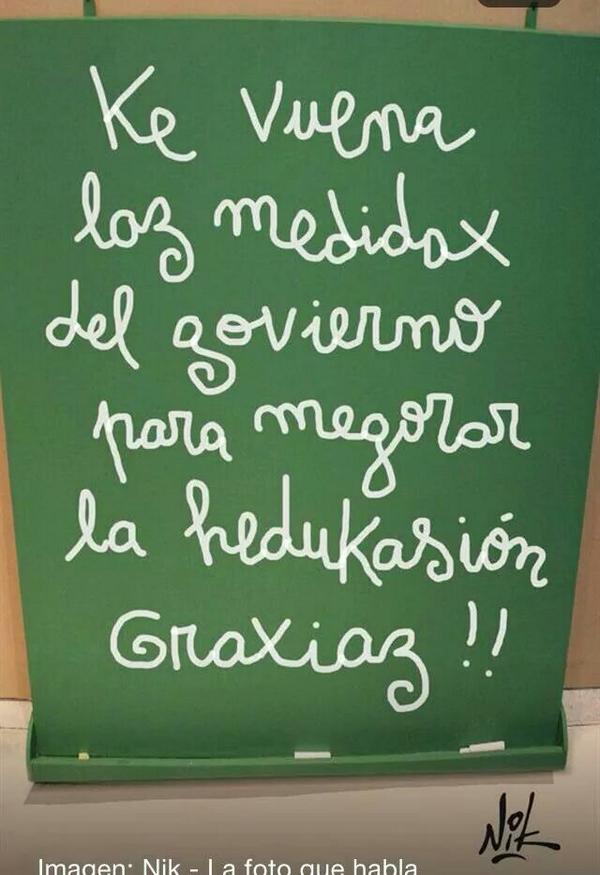 Ke vuena
laz medidax
del govierno
para megorar
la hedukasión
Graxiaz !!
Nik
Imagen: Nik - La foto que habla